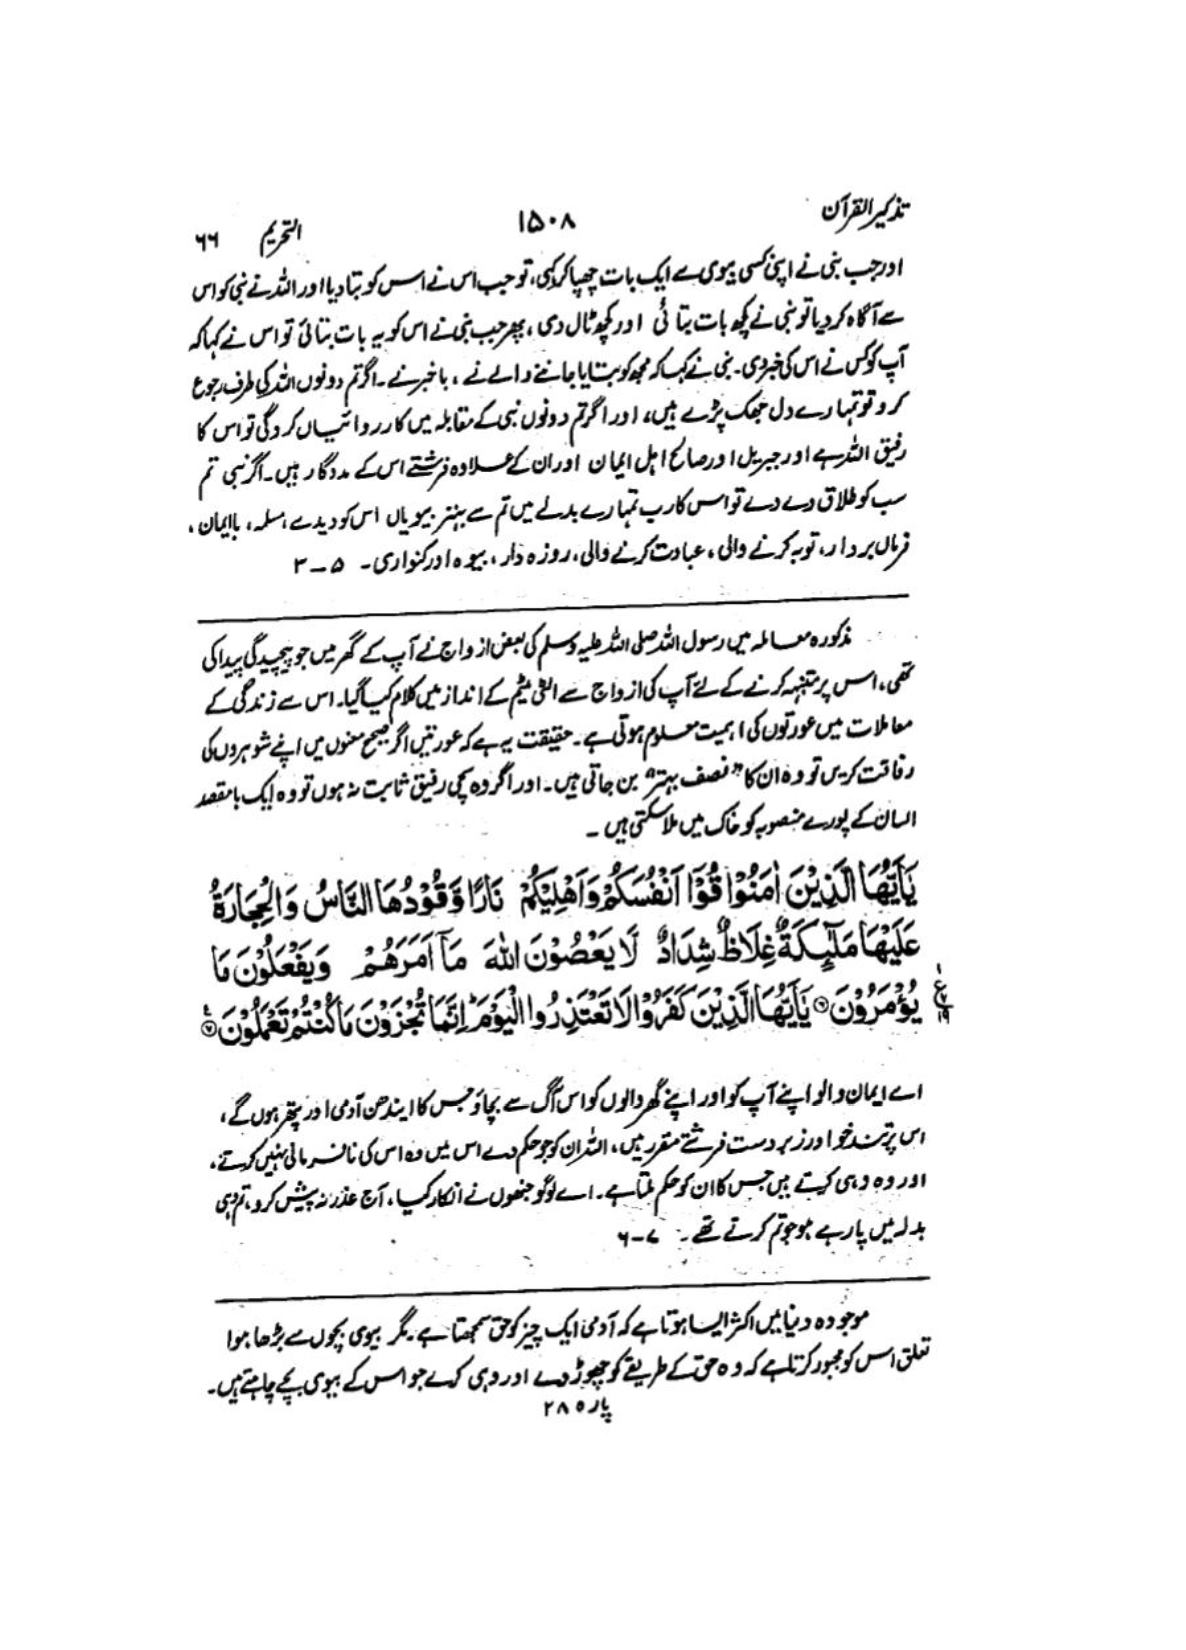 تذکیر القرآن ۱۵۰۸ التحریم ۶۶
اور جب نبی نے اپنی کسی بیوی سے ایک بات چھپا کر کہی، تو جب اس نے اس کو بتا دیا اور اللہ نے نبی کو اس
سے آگاہ کر دیا تو نبی نے کچھ بات بتائی اور کچھ ٹال دی، پھر جب نبی نے اس کو یہ بات بتائی تو اس نے کہا کہ
آپ کو کس نے اس کی خبر دی۔ نبی نے کہا کہ مجھ کو بتایا جاننے والے نے، باخبر نے۔ اگر تم دونوں اللہ کی طرف رجوع
کرو تو تمہارے دل جھک پڑے ہیں، اور اگر تم دونوں نبی کے مقابلہ میں کارروائیاں کرو گی تو اس کا
رفیق اللہ ہے اور جبریل اور صالح اہل ایمان اور ان کے علاوہ فرشتے اس کے مددگار ہیں۔ اگر نبی تم
سب کو طلاق دے دے تو اس کا رب تمہارے بدلے میں تم سے بہتر بیویاں اس کو دیدے، مسلمہ، باایمان،
فرماں بردار، توبہ کرنے والی، عبادت کرنے والی، روزہ دار، بیوہ اور کنواری۔ ۵-۳
مذکورہ معاملہ میں رسول اللہ صلی اللہ علیہ وسلم کی بعض ازواج نے آپ کے گھر میں جو پیچیدگی پیدا کی
تھی، اس پر متنبہ کرنے کے لئے آپ کی ازواج سے الٹی میٹم کے انداز میں کلام کیا گیا۔ اس سے زندگی کے
معاملات میں عورتوں کی اہمیت معلوم ہوتی ہے۔ حقیقت یہ ہے کہ عورتیں اگر صحیح معنوں میں اپنے شوہروں کی
رفاقت کریں تو وہ ان کا "نصف بہتر" بن جاتی ہیں۔ اور اگر وہ سچی رفیق ثابت نہ ہوں تو وہ ایک بامقصد
انسان کے پورے منصوبہ کو خاک میں ملا سکتی ہیں۔
يٰۤاَيُّهَا الَّذِيْنَ اٰمَنُوْا قُوْۤا اَنْفُسَكُمْ وَاَهْلِيْكُمْ نَارًا وَّقُوْدُهَا النَّاسُ وَالْحِجَارَةُ
عَلَيْهَا مَلٰٓئِكَةٌ غِلَاظٌ شِدَادٌ لَّا يَعْصُوْنَ اللّٰهَ مَاۤ اَمَرَهُمْ وَيَفْعَلُوْنَ مَا
يُؤْمَرُوْنَ ۶ يٰۤاَيُّهَا الَّذِيْنَ كَفَرُوْا لَا تَعْتَذِرُوا الْيَوْمَ ؕ اِنَّمَا تُجْزَوْنَ مَا كُنْتُمْ تَعْمَلُوْنَ ۷
اے ایمان والو اپنے آپ کو اور اپنے گھر والوں کو اس آگ سے بچاؤ جس کا ایندھن آدمی اور پتھر ہوں گے،
اس پر تند خو اور زبردست فرشتے مقرر ہیں، اللہ ان کو جو حکم دے اس میں وہ اس کی نافرمانی نہیں کرتے،
اور وہ وہی کرتے ہیں جس کا ان کو حکم ملتا ہے۔ اے لوگو جنھوں نے انکار کیا، آج عذر نہ پیش کرو، تم وہی
بدلہ میں پا رہے ہو جو تم کرتے تھے۔ ۷-۶
موجودہ دنیا میں اکثر ایسا ہوتا ہے کہ آدمی ایک چیز کو حق سمجھتا ہے۔ مگر بیوی بچوں سے بڑھا ہوا
تعلق اس کو مجبور کرتا ہے کہ وہ حق کے طریقے کو چھوڑ دے اور وہی کرے جو اس کے بیوی بچے چاہتے ہیں۔
پارہ ۲۸